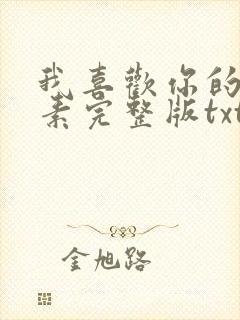 我喜歡你的
素完整版txt
金旭路